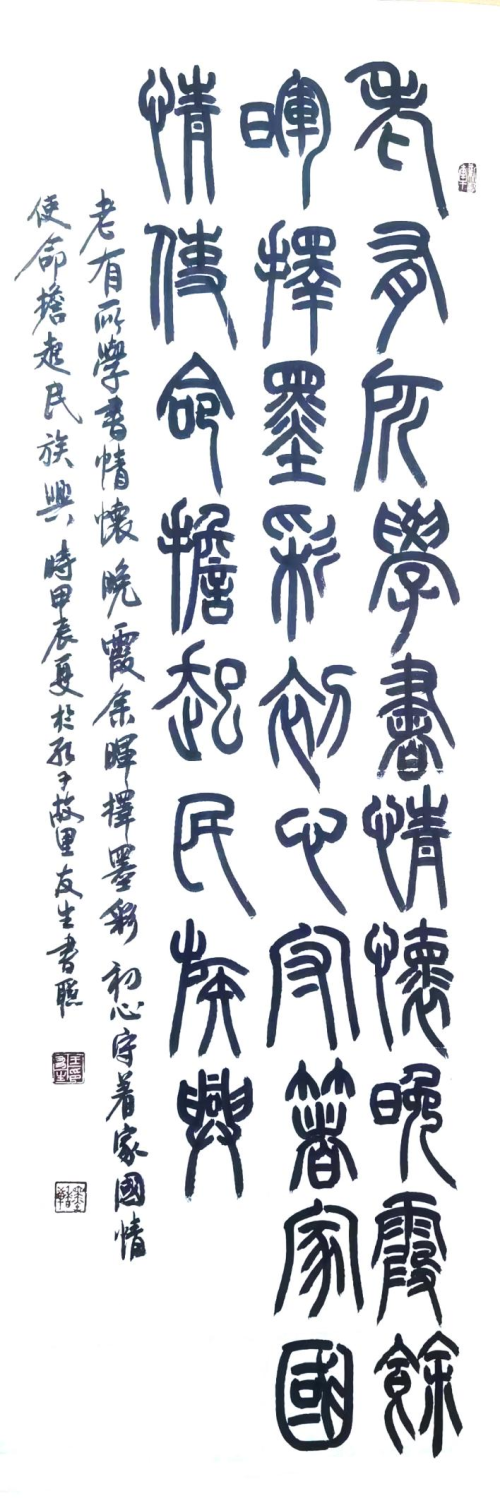 老有所學書情懷晚霞餘
暉擇墨彩初心守著家國
情使命擔起民族興
老有所學書情懷晚霞余暉擇墨彩初心守着家國情
使命擔起民族興時甲辰夏於孔子故里友生書